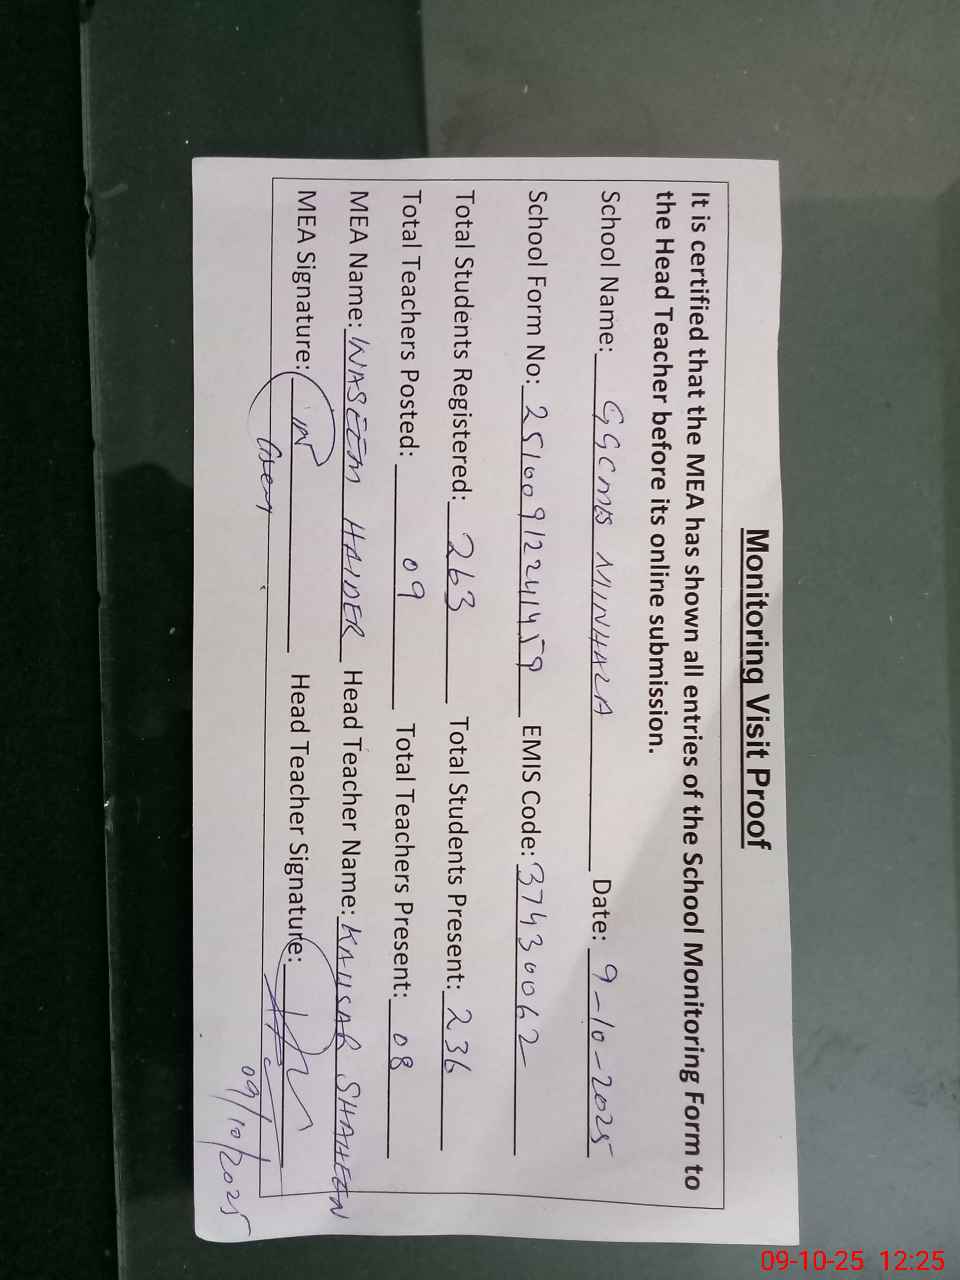 Monitoring Visit Proof
It is certified that the MEA has shown all entries of the School Monitoring Form to
the Head Teacher before its online submission.
School Name: GGCMES MINHALA Date: 9-10-2025
School Form No: 25100912241459 EMIS Code: 37430062
Total Students Registered: 263 Total Students Present: 236
Total Teachers Posted: 09 Total Teachers Present: 08
MEA Name: WASEEM HAIDER Head Teacher Name: KAUSAR SHAHEEN
MEA Signature: Head Teacher Signature:
09/10/2025
09-10-25 12:25